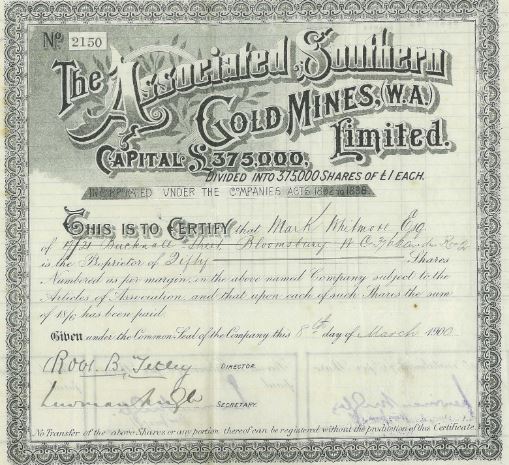 No. 2150
The Associated Southern
Gold Mines, (W.A.)
Limited.
Capital £375,000,
Divided into 375,000 Shares of £1 each.
Incorporated under the Companies Acts 1862 to 1898
This is to Certify that Mark Whitmore Esq
of Street Bloomsbury W.C.
is the Proprietor of Fifty Shares
Numbered as per margin, in the above named Company subject to the
Articles of Association, and that upon each of such Shares the sum
of has been paid.
Given under the Common Seal of the Company this 8th day of March 1900
Robt. B. Tetley DIRECTOR.
SECRETARY.
No Transfer of the above Shares or any portion thereof can be registered without the production of this Certificate.